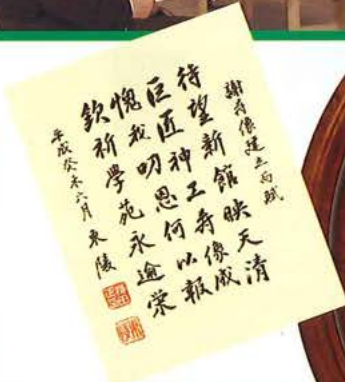 謝寿像建立而賦
待望新館映天清
巨匠神工寿像成
愧我叨恩何以報
欽祈學苑永逾榮
平成癸未六月 東陵